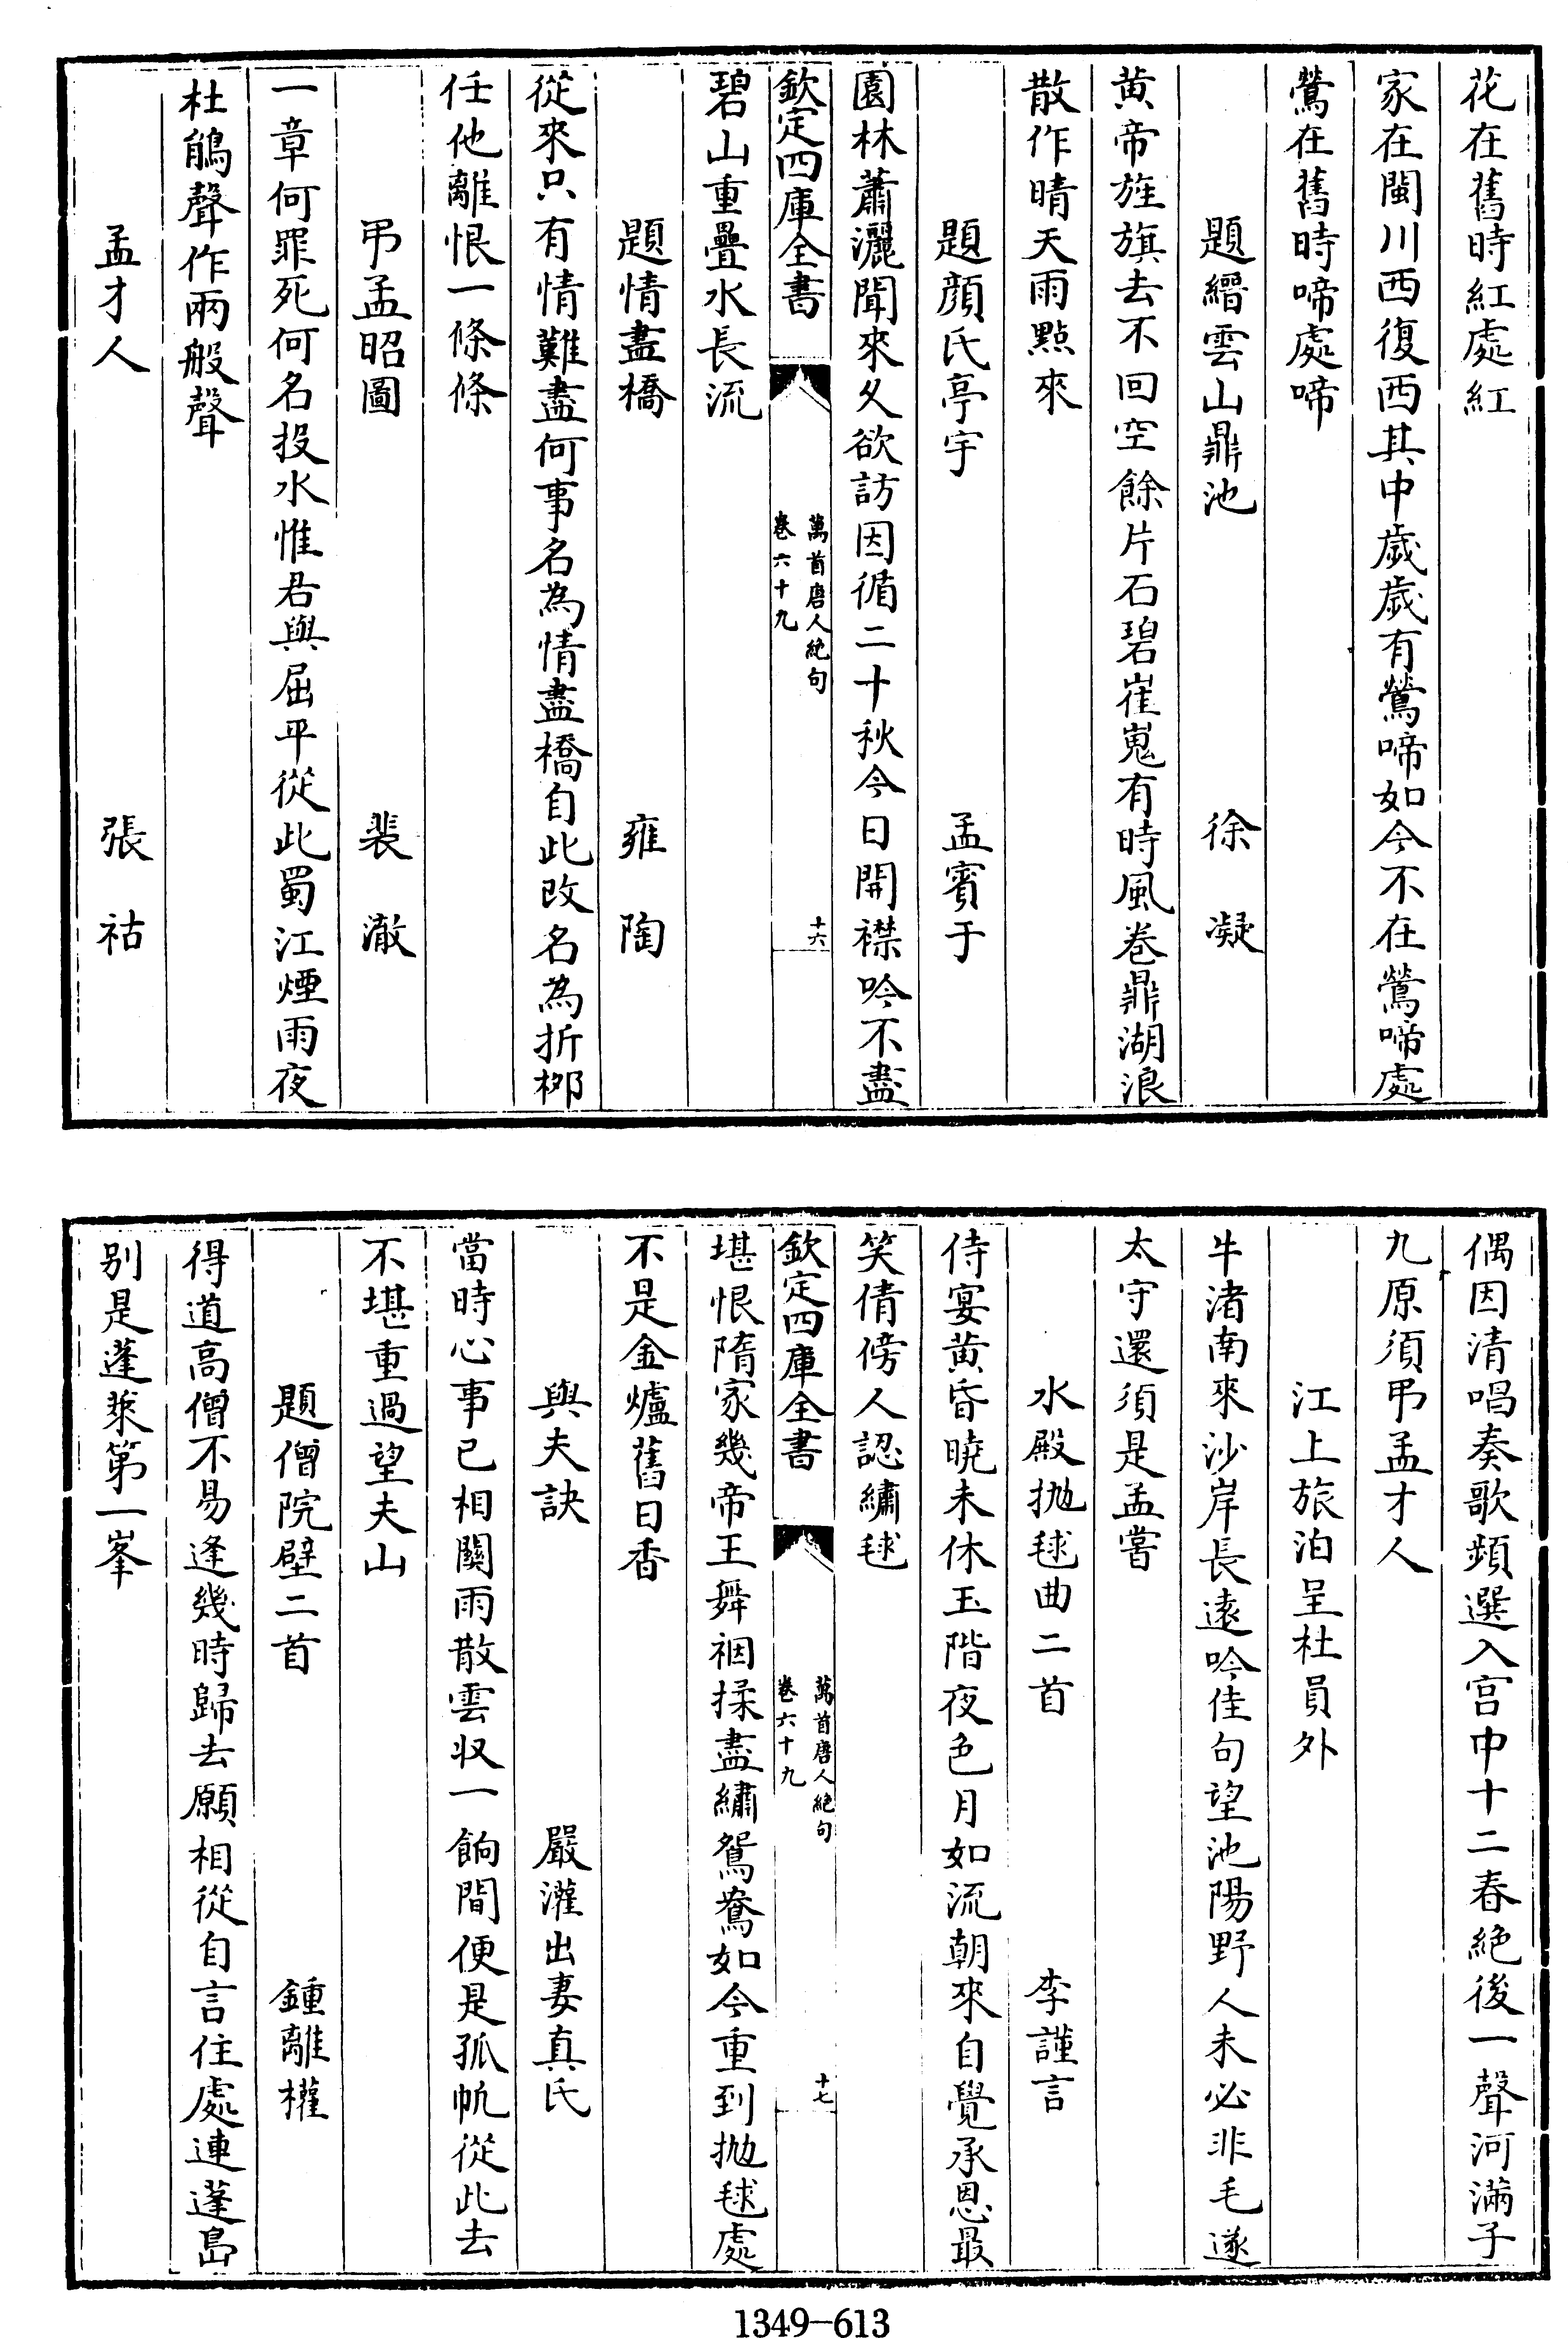 花在舊時紅處紅
家在閩川西復西其中歲歲有鶯啼如今不在鶯啼處
鶯在舊時啼處啼
題縉雲山鼎池　徐凝
黄帝旌旗去不回空餘片石碧崔嵬有時風卷鼎湖浪
散作晴天雨點來
題顔氏亭宇　孟賓于
園林蕭灑聞來久欲訪因循二十秋今日開襟吟不盡
欽定四庫全書
萬首唐人絶句
卷六十九
十六
碧山重疊水長流
題情盡橋　雍陶
從來只有情難盡何事名為情盡橋自此改名為折桞
任他離恨一條條
弔孟昭圖　裴澈
一章何罪死何名投水惟君與屈平從此蜀江煙雨夜
杜鵑聲作兩般聲
孟才人　張祜
偶因清唱奏歌頻選入宫中十二春絶後一聲河滿子
九原須弔孟才人
江上旅泊呈杜員外
牛渚南來沙岸長遠吟佳句望池陽野人未必非毛遂
太守還須是孟嘗
水殿抛毬曲二首　李謹言
侍宴黄昏曉未休玉階夜色月如流朝來自覺承恩最
笑倩傍人認繡毬
欽定四庫全書
萬首唐人絶句
卷六十九
十七
堪恨隋家幾帝王舞裀揉盡繡鴛鴦如今重到抛毬處
不是金爐舊日香
與夫訣　嚴灌出妻真氏
當時心事已相關雨散雲収一餉間便是孤帆從此去
不堪重過望夫山
題僧院壁二首　鍾離權
得道高僧不易逢幾時歸去願相從自言住處連蓬島
别是蓬萊第一峯
1349-613